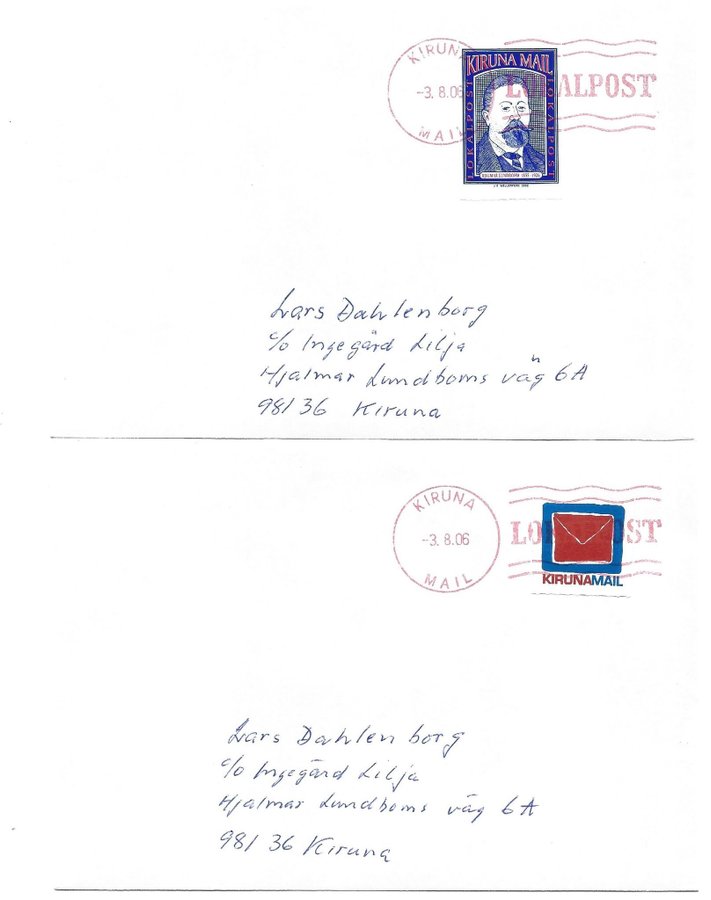 KIRUNA MAIL
-3.8.06
LOKALPOST
KIRUNA MAIL
LOKALPOST
LOKALPOST
Lars Dahlenborg
c/o Ingegärd Lilja
Hjalmar Lundboms väg 6A
981 36 Kiruna
KIRUNA MAIL
-3.8.06
LOKALPOST
KIRUNAMAIL
Lars Dahlenborg
c/o Ingegärd Lilja
Hjalmar Lundboms väg 6A
981 36 Kiruna